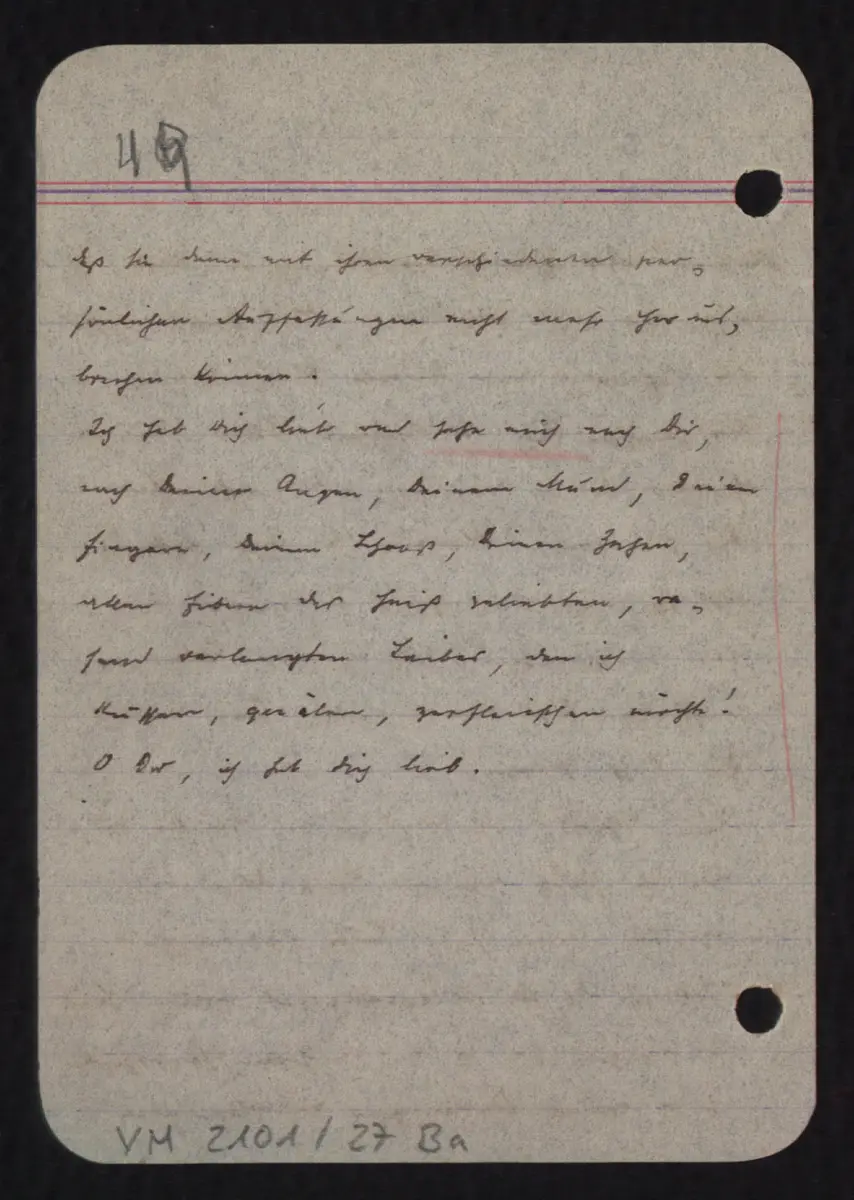 49
daß sie dann mit ihren verschiedenen per-
sönlichen Auffassungen nicht mehr heraus-
brechen können.
Ich hab Dich lieb und sehne mich nach Dir,
nach Deinen Augen, Deinem Mund, Deinen
Fingern, Deinem Schooß, Deinen Zehen,
allen Fibern des heiß geliebten, ra-
send verlangten Leibes, den ich
küssen, quälen, zerfleischen möchte!
O Du, ich hab Dich lieb.
VM 2101/27 Ba